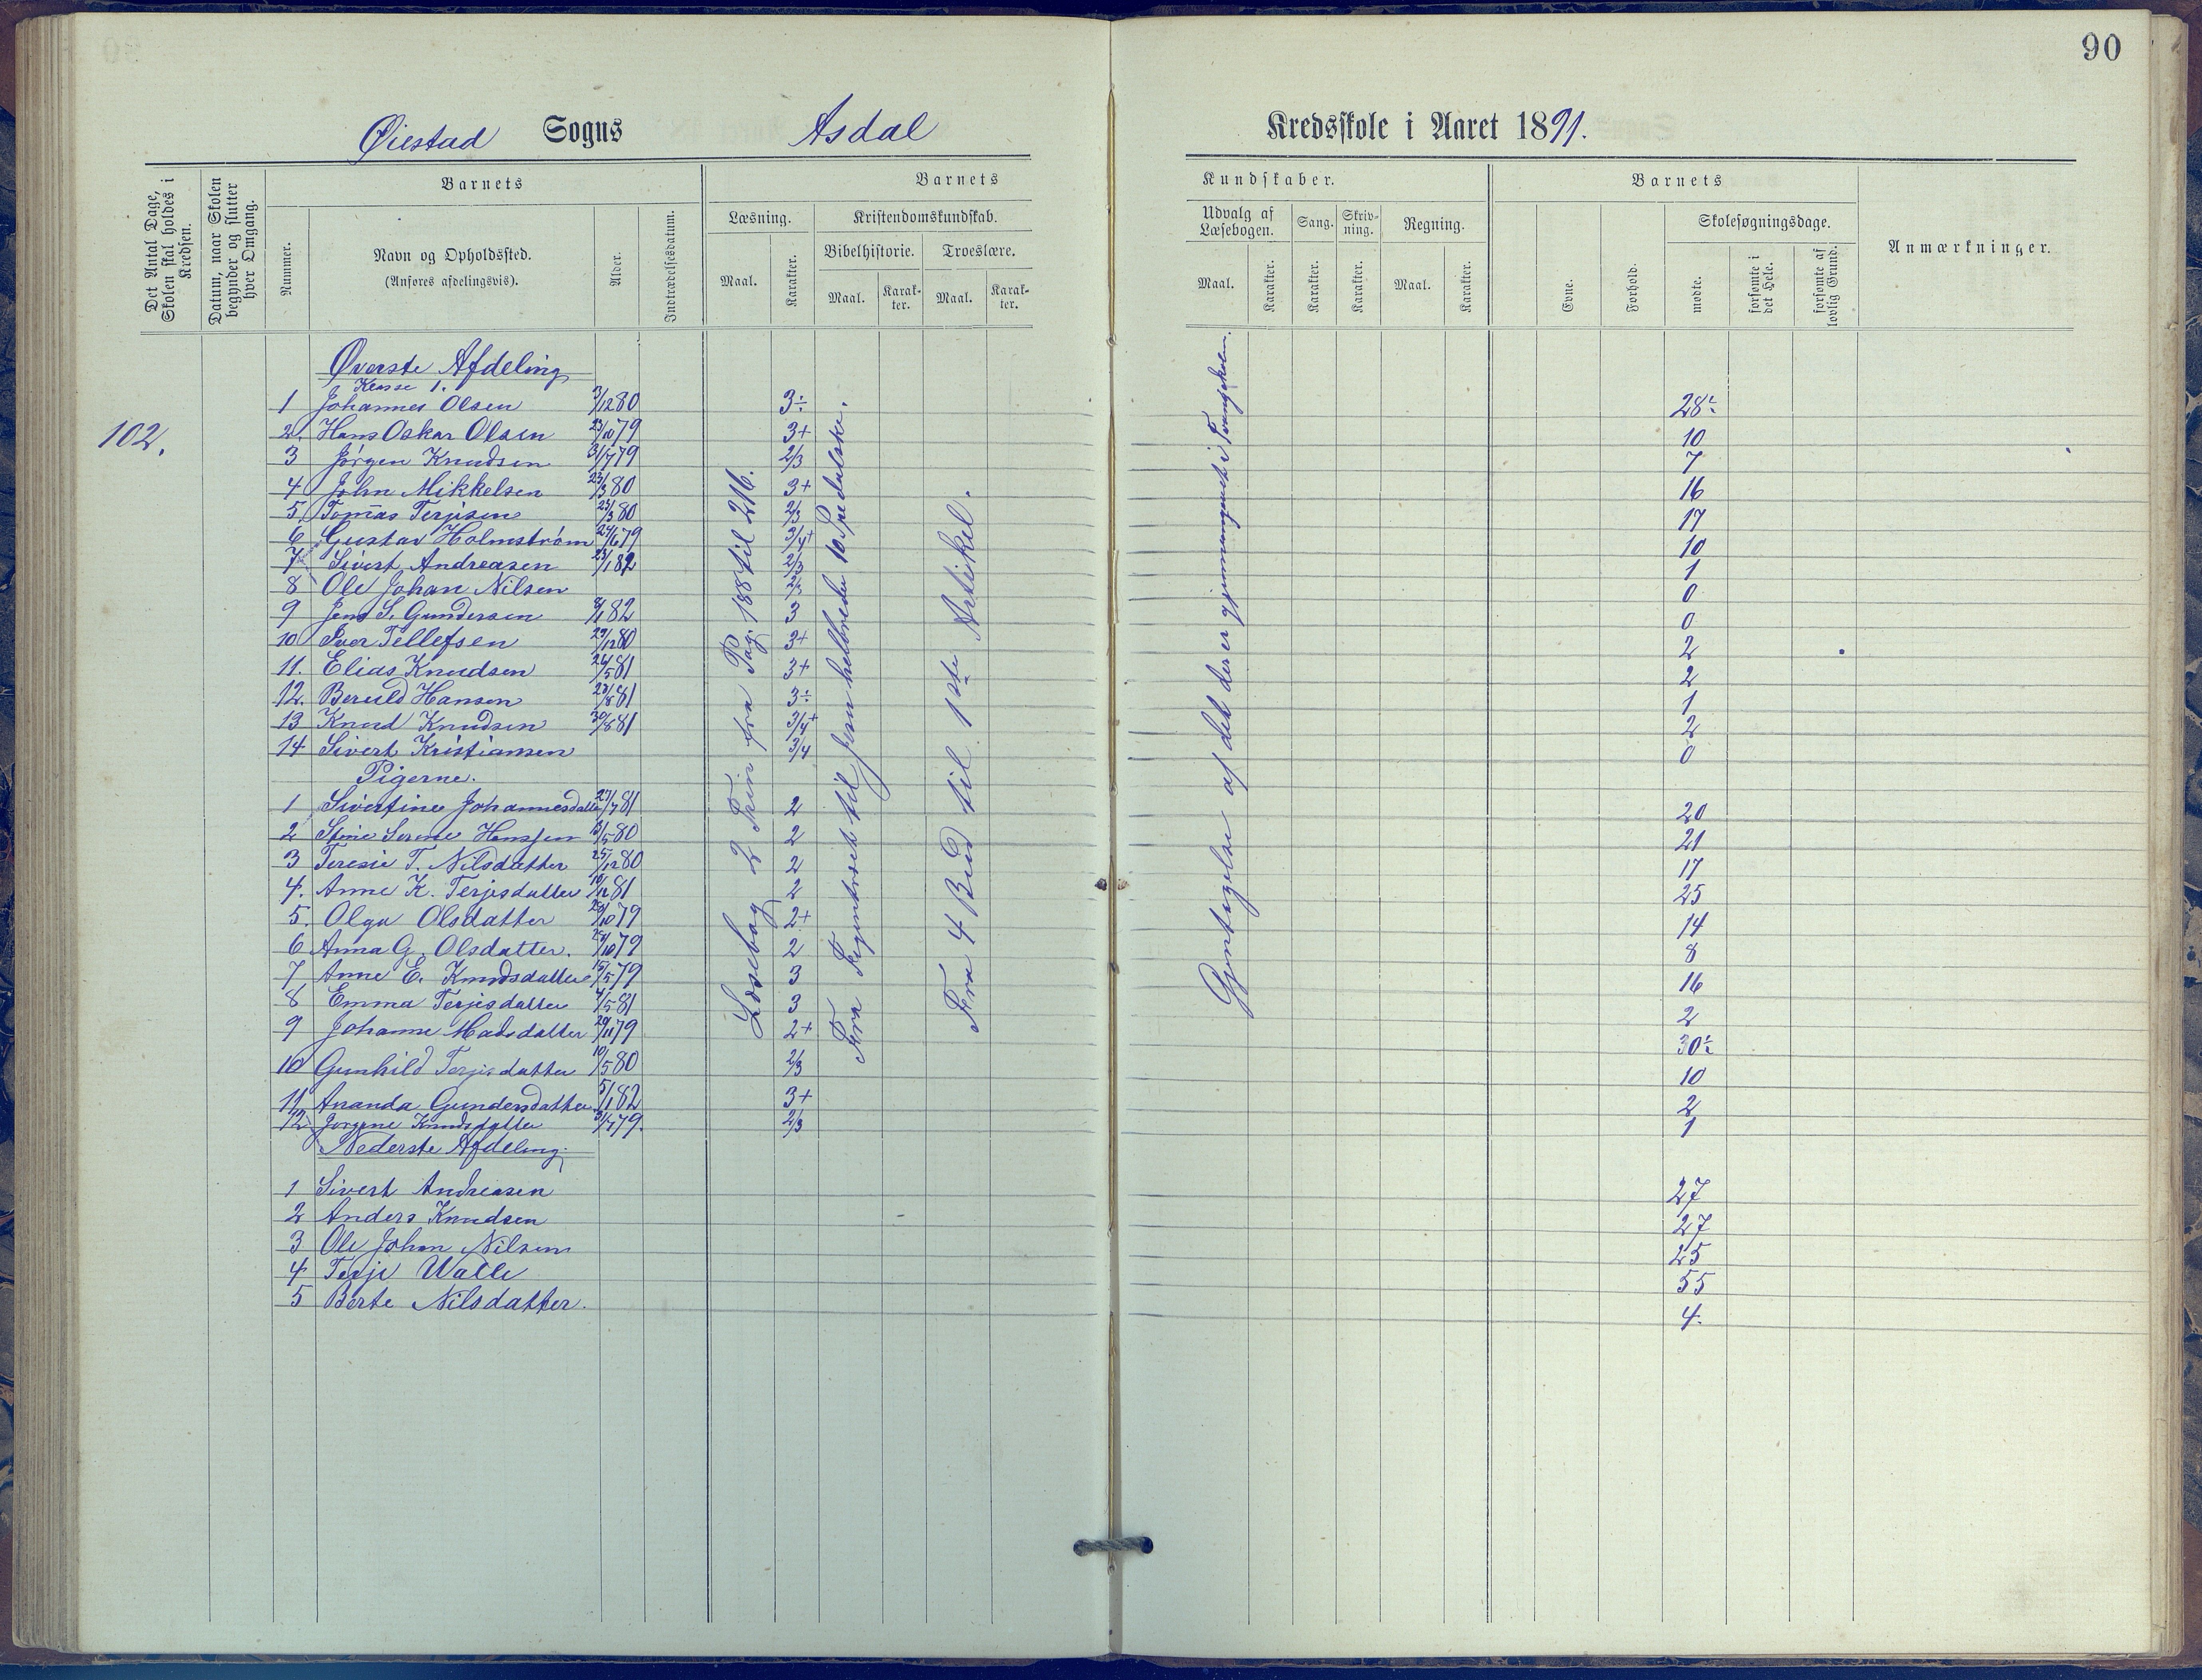 90
Øiestad Sogns Asdal Kredsskole i Aaret 1891.
Det Antal Dage, Skolen skal holdes i Kredsen.
Datum, naar Skolen begynder og slutter hver Omgang.
Barnets
Nummer.
Navn og Opholdssted.
(Anføres afdelingsvis).
Alder.
Indtrædelsesdatum.
Barnets Kundskaber.
Læsning.
Maal.
Karakter.
Kristendomskundskab.
Bibelhistorie.
Maal.
Karakter.
Troeslære.
Maal.
Karakter.
Udvalg af Læsebogen.
Maal.
Karakter.
Sang.
Karakter.
Skrivning.
Karakter.
Regning.
Maal.
Karakter.
Barnets
Evne.
Forhold.
Skolesøgningsdage.
mødte.
forsømte i det Hele.
forsømte af lovlig Grund.
Anmærkninger.
102.
Øverste Afdeling
Klasse 1.
1 Johannes Olsen 3/12 80 3÷ 28½
2. Hans Oskar Olsen 23/10 79 3+ 10
3 Jørgen Knudsen 31/7 79 2/3 7
4 John Mikkelsen 23/3 80 3+ 16
5 Tomas Terjesen 80 2/3 17
6 Gustav Holmstrøm 24/6 79 3/4+ 10
7 Sivert Andreasen 23/1 82 2/3 1
8 Ole Johan Nilsen 2/3 0
9 Jens S. Gundersen 82 3 0
10 Iver Tellefsen 29/12 80 3+ 2
11. Elias Knudsen 26/5 81 3+ 2
12. Beruld Hansen 23/8 81 3÷ 1
13 Knud Knudsen 30/8 81 3/4+ 2
14 Sivert Kristiansen 3/4 0
Pigerne.
1 Sivertine Johannesdatter 27/7 81 2 20
2 Stine Serene Hansen 13/5 80 2 21
3 Teresie T. Nilsdatter 25/12 80 2 17
4. Anne K. Terjesdatter 10/12 81 2 25
5. Olga Olsdatter 79 2+ 14
6 Anna G. Olsdatter. 79 2 8
7 Anne E. Knudsdatter 15/5 79 3 16
8 Emma Terjesdatter 4/5 81 3 2
9 Johanne Madsdatter 29/11 79 2+ 30½
10 Gunhild Terjesdatter 10/5 80 2/3 10
11 Ananda Gundersdatter 5/1 82 3+ 2
12 Jørgine Knudsdatter 31/7 79. 2/3 1
Nederste Afdeling.
1 Sivert Andreasen 27
2 Anders Knudsen 27
3 Ole Johan Nilsen 25
4 Terje Walle 55
5 Berte Nilsdatter. 4.
Læsebog 2 Trin fra Pag. 188 til 216.
Fra Figentræet til Jesu helbreder 10 Spedalske.
Fra 4 Bud til 1ste Artikel.
Gjentagelse af det der er gjennemgaaet i